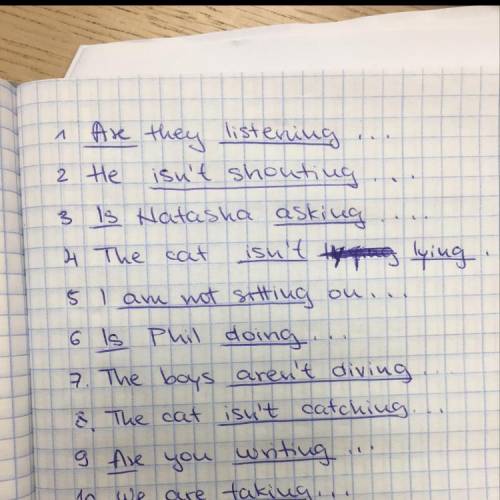 1 Are they listening ...
2 He isn't shouting ...
3 Is Natasha asking ....
4 The cat isn't lying .
5 I am not sitting on ...
6 Is Phil doing ...
7. The boys aren't diving ...
8. The cat isn't catching ...
9 Are you writing ...
10 We are taking ...